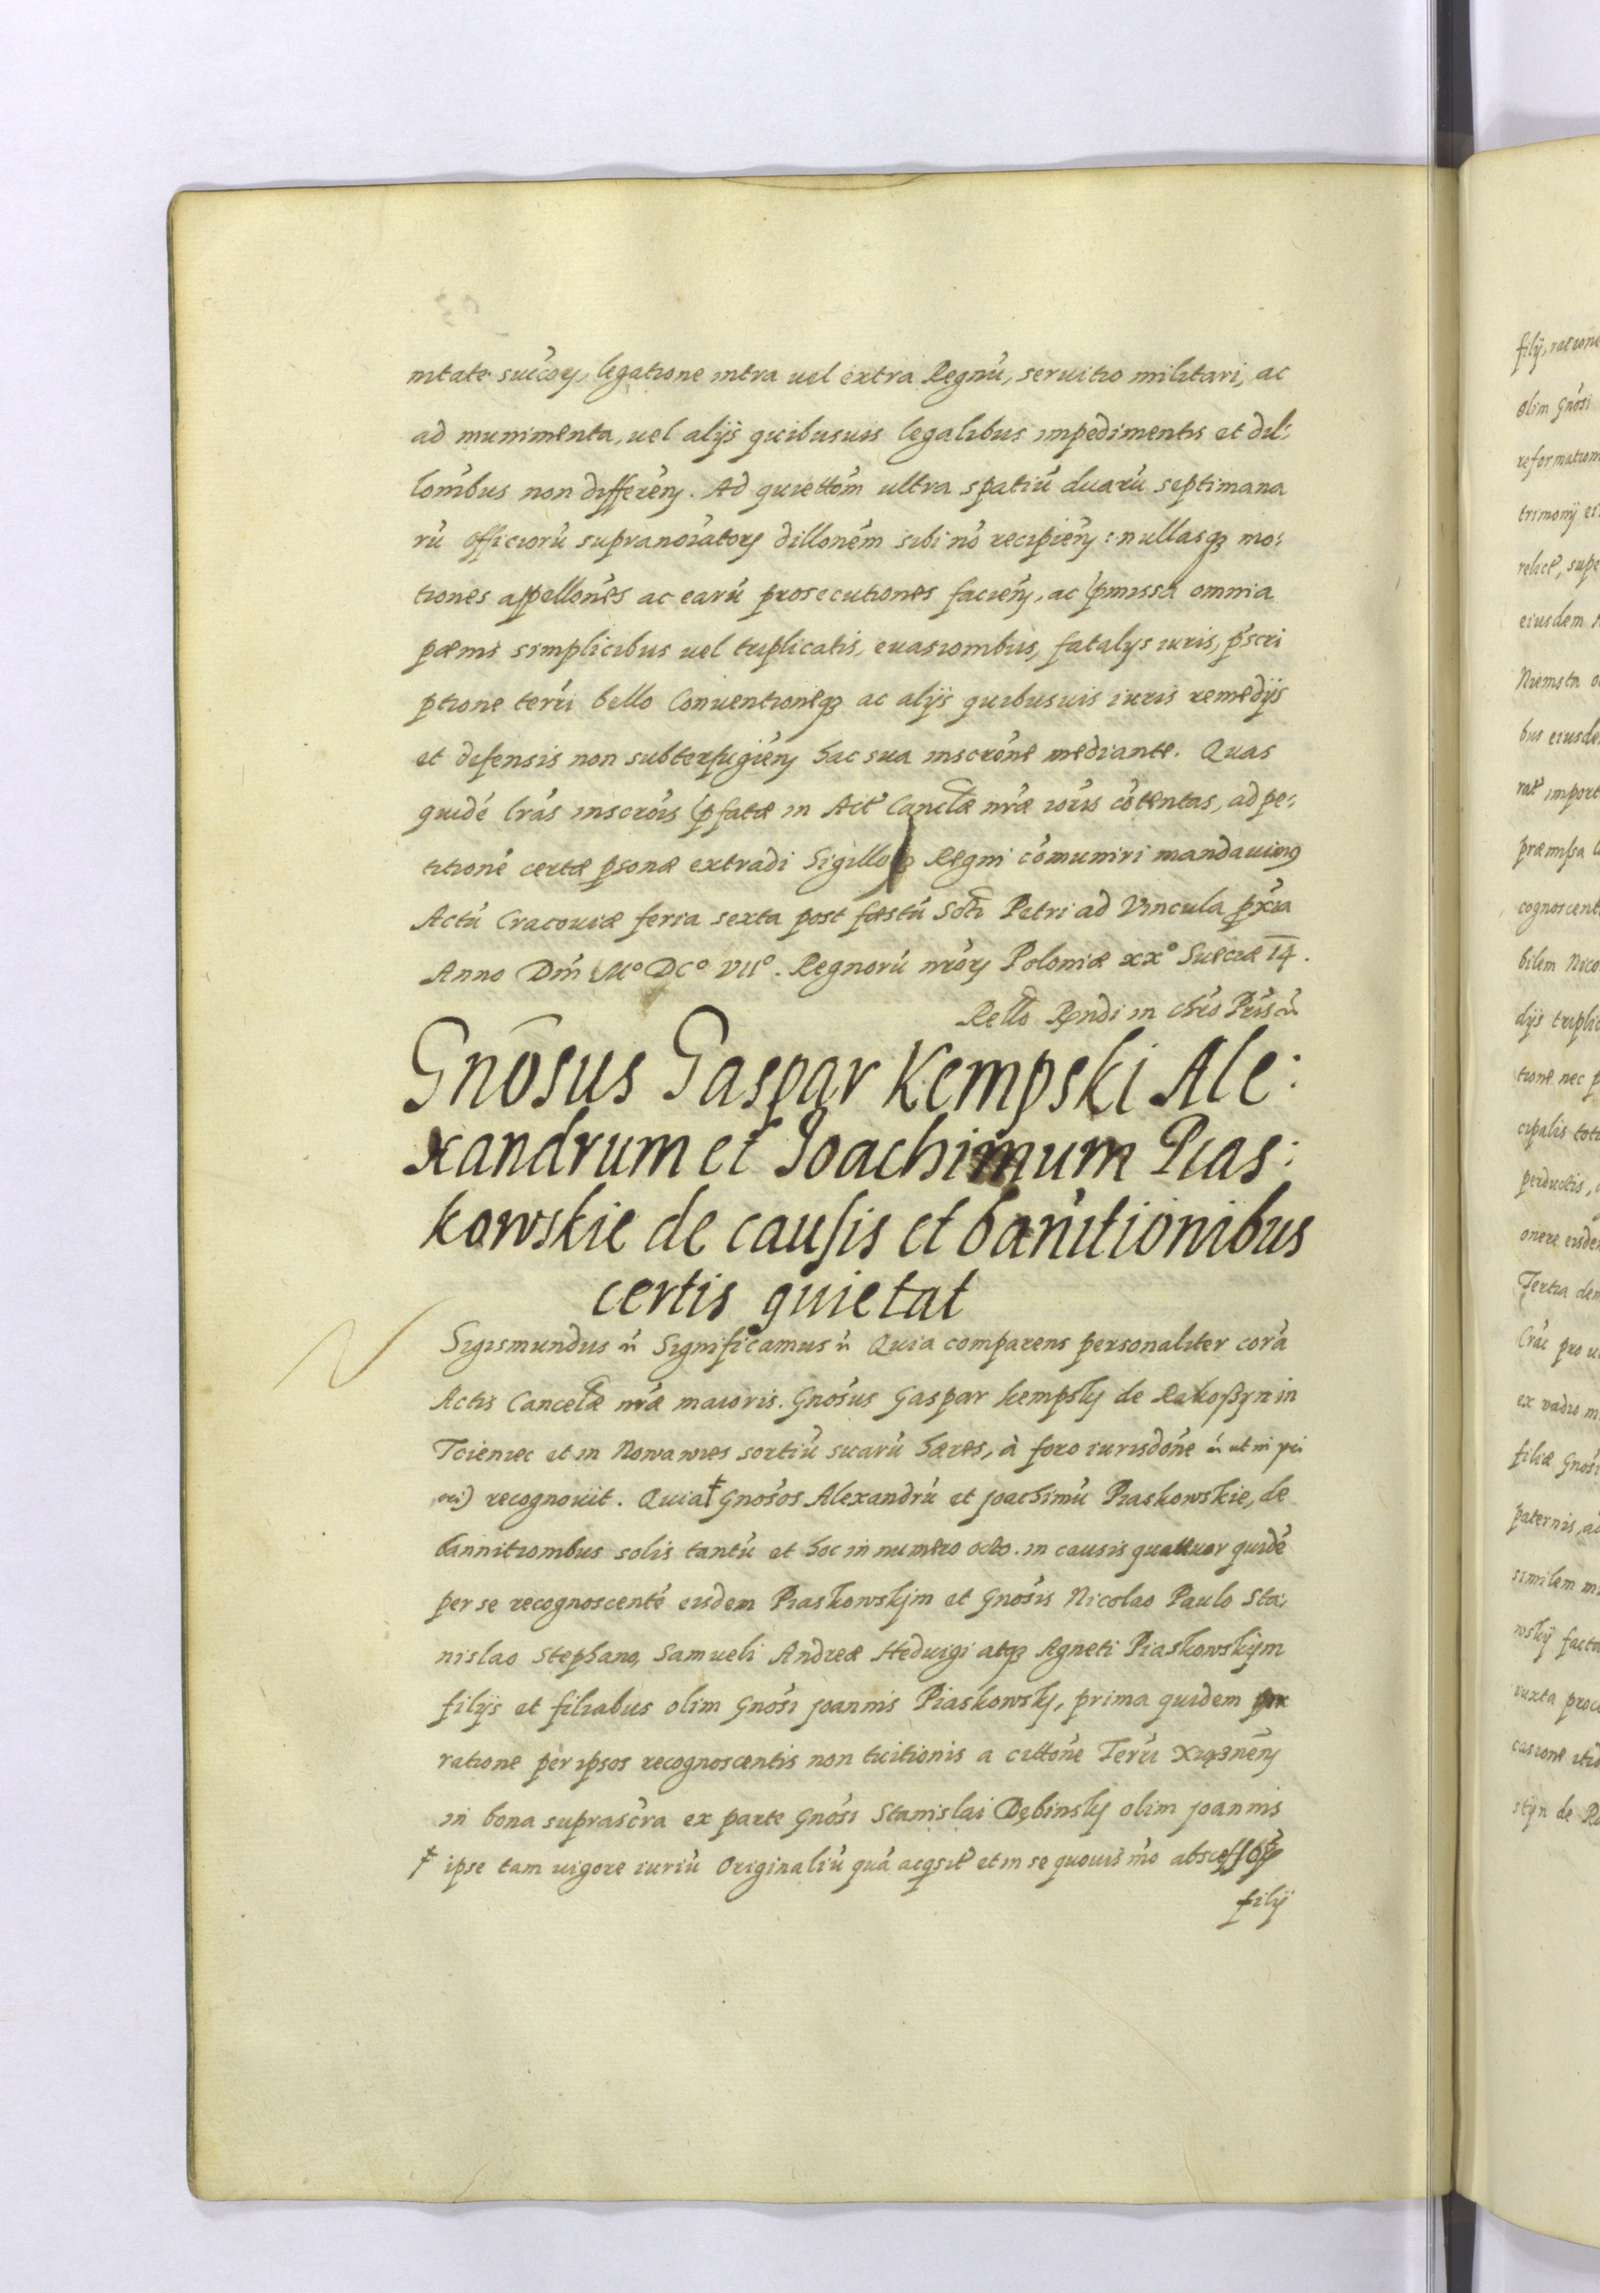 nitate suc̃cor, legatione intra uel extra Regnũ, seruitio militari, ac
ad munimenta, uel alijs quibusuis legalibus impedimentis et dil:
lonibus non differen̄. Ad quiettõm ultra spatiũ duarũ septimana
rũ officiorũ supranoĩator dillonẽm sibi nõ recipien̄: nullasq3 mo:
tiones appellões ac earũ prosecutiones facien̄, ac p̃missa omnia
pæmis simplicibus uel triplicatis, euasionibus, fatalys iuris, p̃scri
ptione terŕi bello Conuentioneq3 ac alijs quibusuis iuris remedijs
et defensis non subterfugien̄ hac sua inscrõne mediante. Quas
quidẽ lrãs inscrõis p̃fatæ in Act̃ Canclæ nræ ioris cõtentas, ad pe:
titionẽ certæ psonæ extradi Sigilloq3 Regni cõmuniri mandauimus
Actũ Cracouiæ feria sexta post fæstũ Scti Petri ad Vincula p̃xia
Anno Dm̃ Mº DCº VIIº. Regnorũ nrõr Poloniæ xxº Sueciæ 14.
Rello Rndi in chro Pris ñ
Gnõsus Gaspar Kempski Ale:
xandrum et Joachimum Pias:
kowskie de causis et bañitionibus
certis quietat
Sigismundus ñ Significamus ñ Quia comparens personaliter corã
Actis Cancelæ nræ maioris. Gnõsus Gaspar kempsky de Rakoßyn in
Tcieniec et in Nowawies sortiũ suarũ hæres, à foro iurisdõne ñ ut in pri
ori) recognouit. Quia † Gnõsos Alexandrũ et Joachimũ Piaskowskie, de
bannitionibus solis tantũ et hoc in numero octo. in causis quattuor quidẽ
per se recognoscentẽ eisdem Piaskowskim et Gnõsis Nicolao Paulo Sta:
nislao Stephano, Samueli Andreæ Heduigi atq3 Agneti Piaskowskijm
filijs et filiabus olim Gnõsi Joannis Piaskowsky, prima quidem
ratione per ipsos recognoscentis non tuitionis a cittõne Terŕi Xiązneń
in bona suprascra ex parte Gnõsi Stanislai Dębinsky olim Joannis
† ipse tam uigore iuriũ Originaliũ quã acqsit̃ et in se quouis mõ
filij
filij, ratione
olim Gnõsi
trimonij
eiusdem
Niemsta
bus eiusde
cognoscent
bilem Nico
dijs triplic
tione nec p
cipalis
Tertia
Crac pro
ex vadio
filiæ Gnõsi
paternis,
similem
wskij facta
iuxta
casione